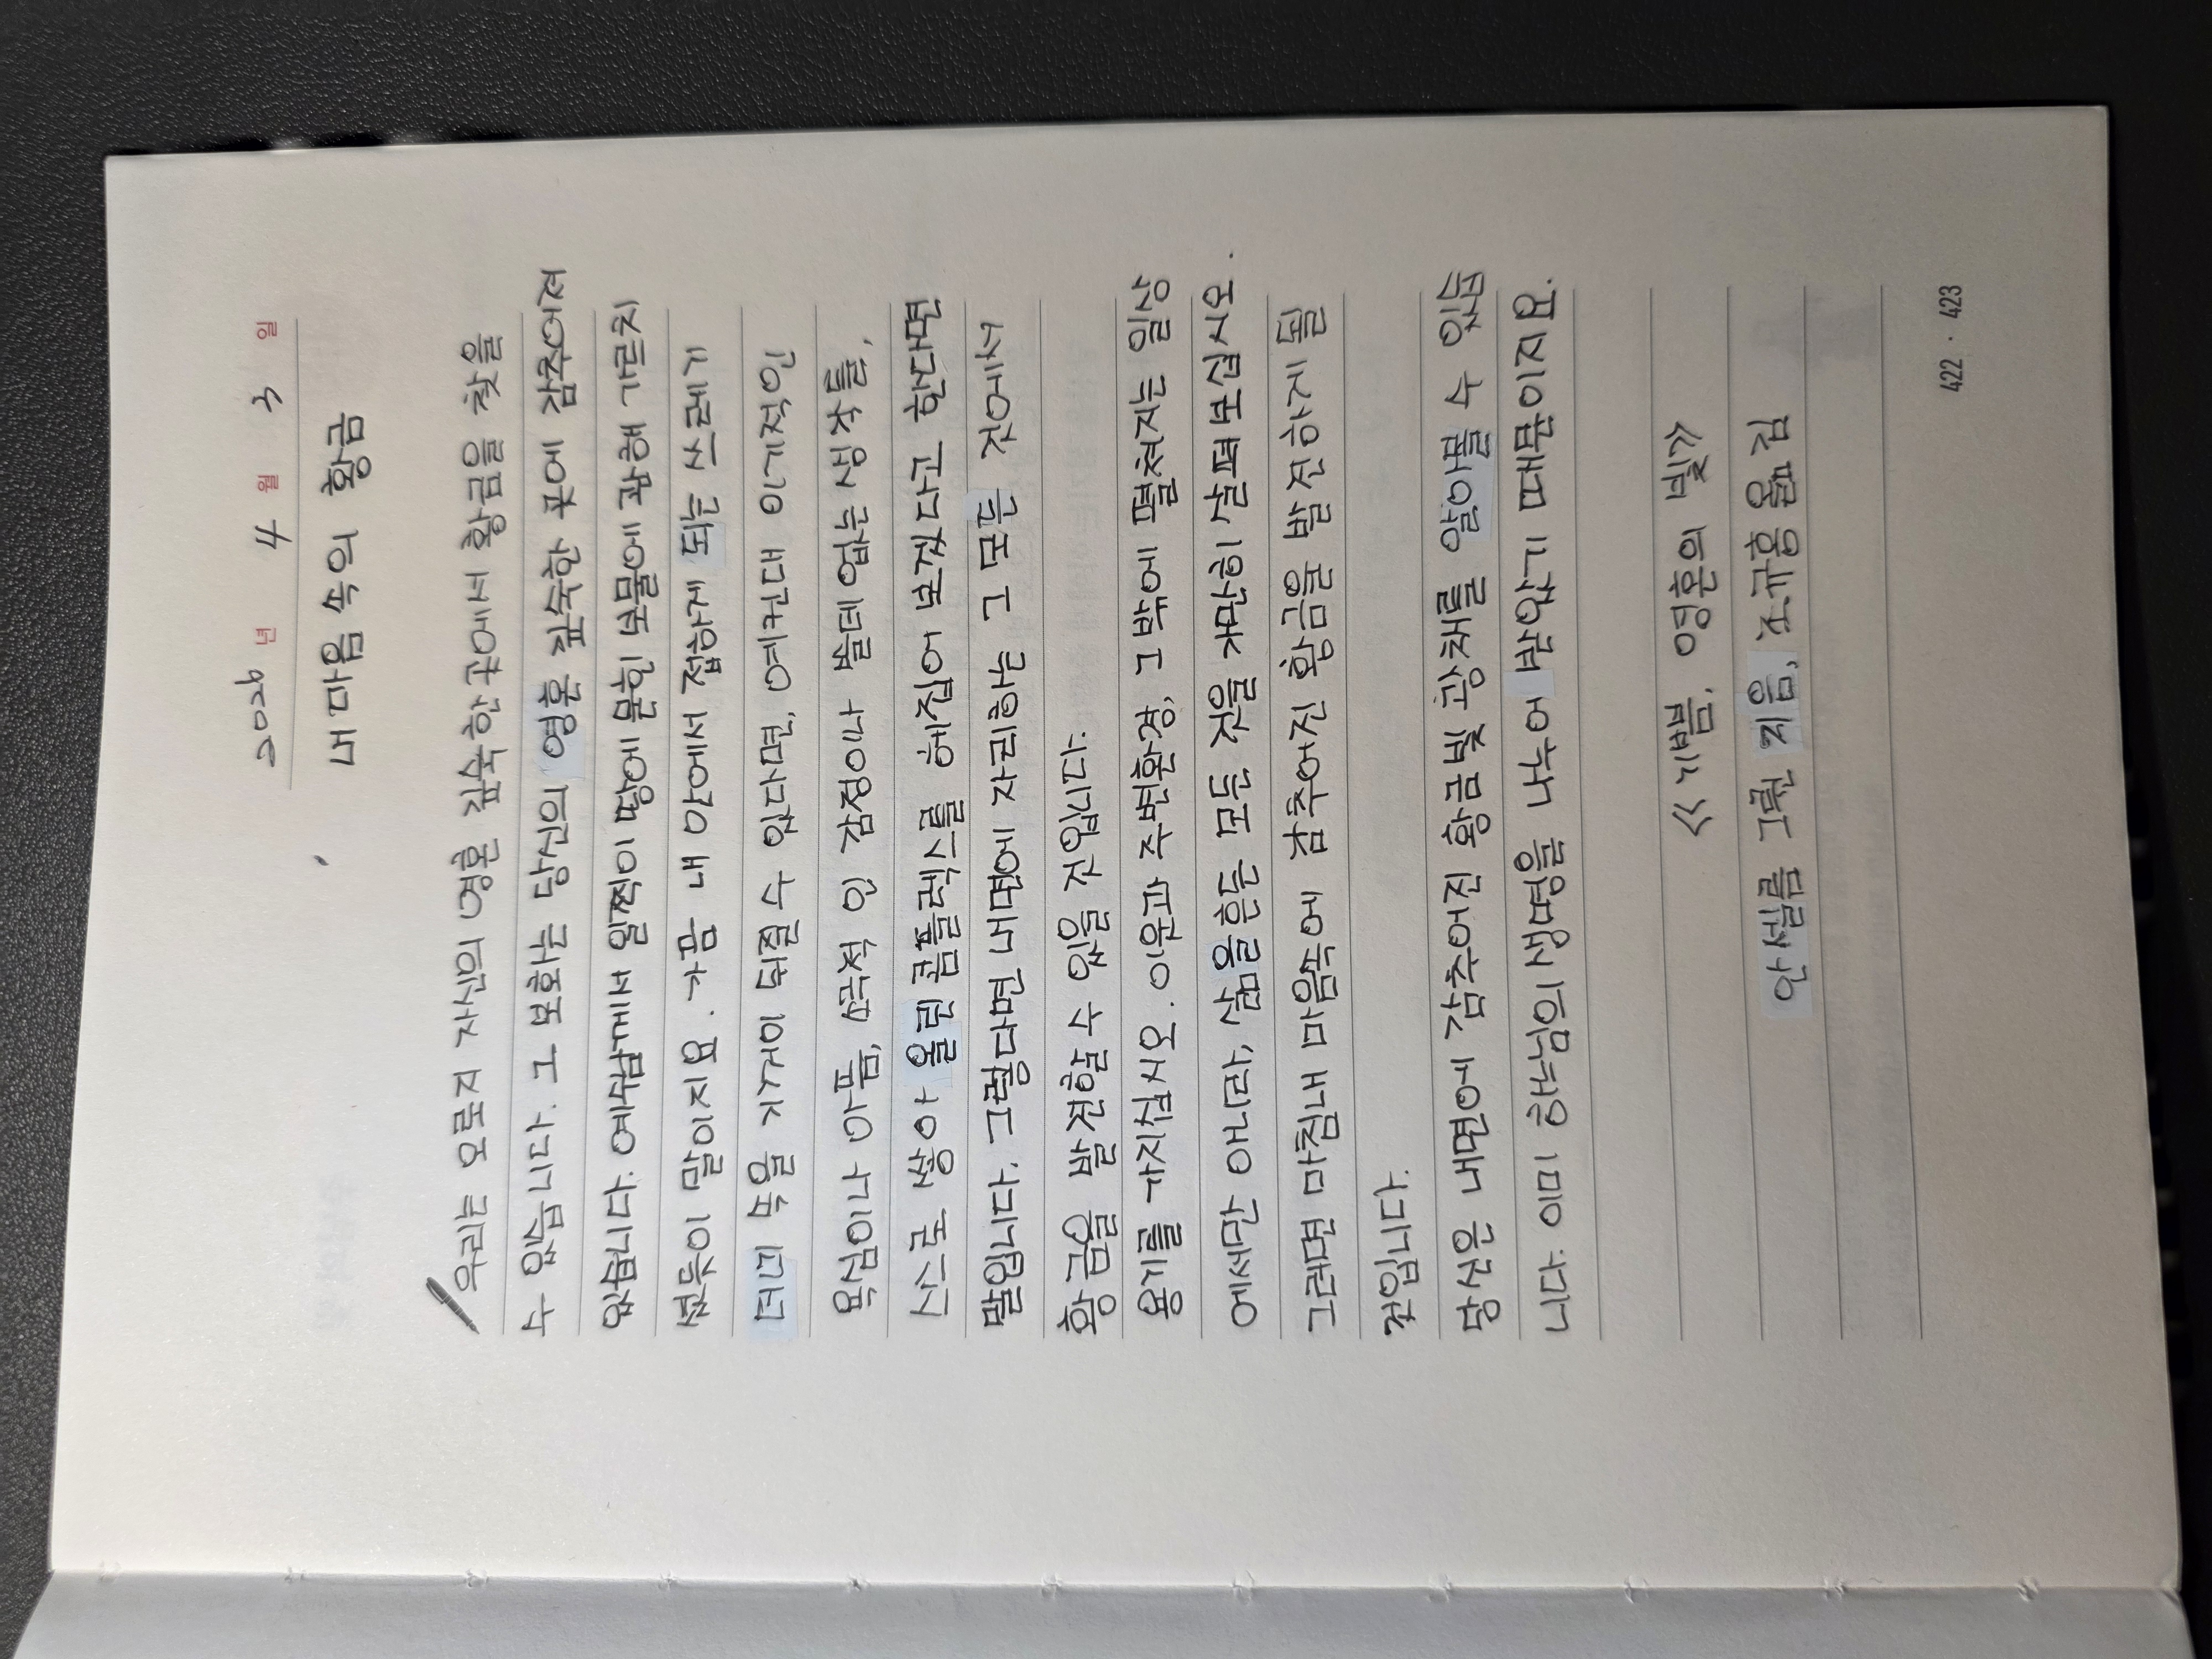 2029 년 4 월 3 일
내 마음 속의 황금
우리는 오로지 자신의 영혼 깊숙한 곳에서 황금을 찾을
수 있습니다. 그 보화는 당신의 영혼 깊숙한 곳에 감추어져
있습니다. 예수님께서 일찍이 땅에 묻힌 보물에 관해 가르치
셨듯이 말이지요. 가끔 내 안에서 접하게 되는 쓰레기
더미 속을 기꺼이 뒤질 수 있다면, 예컨대 이기적인
욕심이나 아픔, 성적 인 감정이나 쓸데없는 생각들,
스스로 쌓아 올린 콤플렉스를 헤집어 보겠다고 한다면
말입니다. 그렇다면 내면에 자리하는 그 모든 것에서
황금을 발견할 수 있을 것입니다.
용기를 가지십시오. 이웃과 주변환경, 그 밖에 펼쳐지는 일상
에서만 아니라, 삶을흔든 모든 것을 가만히 살펴보십시오.
그러면 마침내 마음속에 감추어진 황금을 발견하게 될
것입니다.
당신은 내면에 감추어진 황금빛 광채를 알아볼 수 있습
니다. 이미 하느님의 생명을 나누어 받았기 때문이지요.
《 기쁨, 영혼의 빛》
안셀름 그륀 지음, 조규홍 옮김
422 · 423